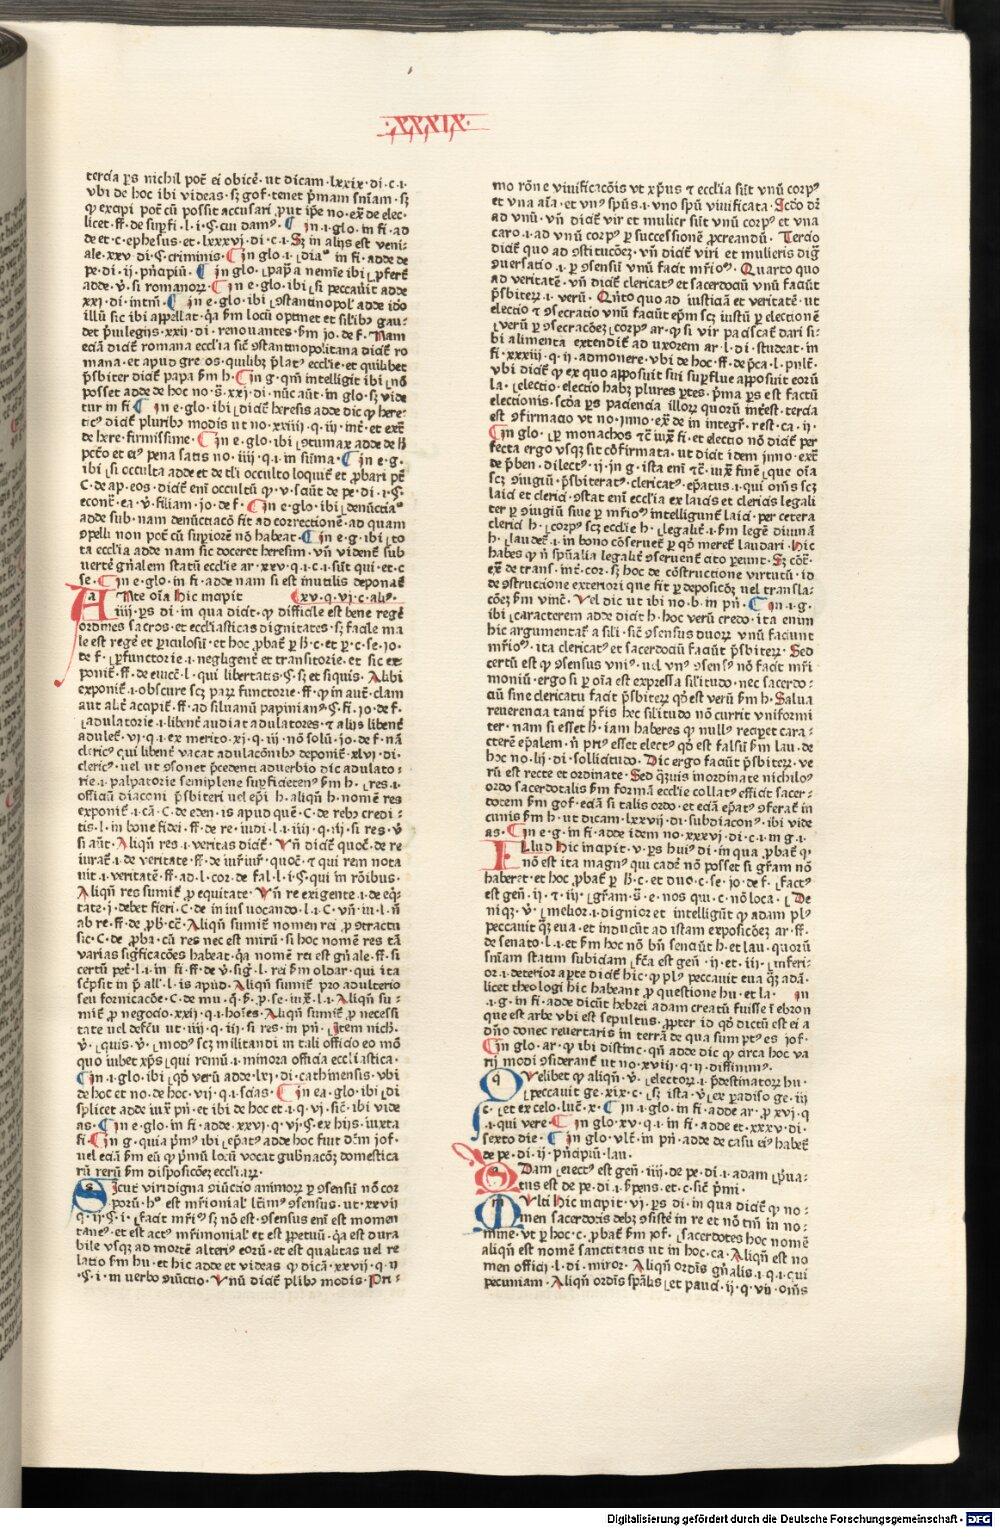 ·XXXIX·
tercia ꝑs nichil pot̄ ei obicē· ut dicam·lxxix·di·c·i·
vbi de hoc ibi videas·sꝫ gof·tenet p̄mam sn̄iam·sꝫ
ꝙ excipi pot̄ cū possit accusari ꝓut ip̄e no·ex̄ de elec·
licet·ff·de suꝑfi·l·i·§·cui dam⁹· In·1·glo·in fi·ad
de et·c·ephesus·et·lxxxvi·di·c·1·Sꝫ in alijs est veni⸗
ale·xxv·di·§·criminis· In glo·1· in fi·adde de
pe·di·ij·pn̄cipiū· In glo· pap̄a nemīe ibi
adde·v̄·si romanoꝝ· In e·glo·ibi si peccauit adde
xxj·di·intm̄· In e·glo·ibi ꝯstantinopol' adde ido
illū sic ibi appellat·q̄a ẜm locū optinet et sil'ibꝫ gau⸗
det p̄uilegijs·xxij·di·renouantes·ẜm jo·de f·Nam
eciā dicit̄ romana ecclīa sic̄ ꝯstantinopolitana dicit̄ ro
mana·et apud gre os·quilibꝫ p̄lat⁹ ecclīe·et quilibet
p̄sbiter dicit̄ papa ẜm h· In g·qn̄ intelligit ibi nō
posset adde de hoc no·s̄·xxj·di·nūc aūt·in glo·sꝫ vide
tur in fi In e·glo·ibi dicit̄ heresis adde dic ꝙ here⸗
tic⁹ dicit̄ pluribꝫ modis ut no·xxiiij·q·iij·int̄·et ex̄
de here·firmissime· In e·glo·ibi ꝯtumax adde de
pctō et ei⁹ pena satis no·iiij·q·1·in sūma· In e·g·
ibi si occulta adde et de occulto loquit̄ et ꝓbari pt̄
C·de ap·eos·dicit̄ eni occultū ꝙ·v·sciūt de pe·di·i·§·
econt̄·ea·v̄·filiam·jo·de f· In e·glo·ibi denuccia⁹
adde sub·nam denūctiacō fit ad correctionē·ad quam
ꝯpelli non pot̄ cū suꝑiorē nō habeat· In e·g·ibi to
ta ecclīa adde nam sic doceret heresim·vn̄ vident̄ sub
uerte gn̄alem statū ecclīe ar·xxv·q·i·c·i·sūt qui·et·c
se· In e·glo·in fi·adde nam si est inutilis deponat̄
Nte oīa Hic incipit xv·q·vj·c·aliᵃ·
iiij·ꝑs di·in qua dicit·ꝙ difficile est bene regē
ordines sacros·et ecclīasticas dignitates·sꝫ facile ma
le est regē et ꝑiculosū·et hoc ꝓbat̄·c·et ꝑ·c·se·jo·
de f· ꝑfunctorie·1·negligent̄ et transitorie·et sic ex
ponit̄·ff·de euict̄·l·qui libertatis·§·sꝫ et siquis·Alibi
exponit̄·1·obscure scꝫ paꝝ functorie·ff·ꝙ in aut̄·clam
aut alit̄ accipit̄·ff·ad siluanū papinian⁹·§·fi·jo·de f·
adulatorie·1·libent̄ audiat adulatores·⁊ alijs libent̄
adulet̄·vj·q·1·ex merito·xj·q·iij·nō solū·jo·de f·nā
cleric⁹ qui libent̄ vacat adulacōnibꝫ deponit̄·xlvi·di·
cleric⁹·uel ut ꝯsonet p̄cedenti aduerbio dic adulato⸗
rie·1·palpatorie semiplene suꝑficieten⁹ ẜm h· res·1·
officiū diaconi p̄sbiteri uel ep̄i h·aliqn̄ h·nomē res
exponit̄·1·cā·C·de eden·is apud quē·C·de rebꝫ credi⸗
tis·l·in bone fidei·ff·de re·iudi·l·1·iiij·q·iij·si res·v̄
si aūt·Aliqn̄ res·1·veritas dicit̄·Vn̄ dicit̄ quoc̄·de re
iurat̄·1·de veritate·ff·de iur̄iur̄·quoc̄·⁊ qui rem nota
uit·1·veritatē·ff·ad·l·cor·de fal·l·i·§·qui in rōibus·
Aliqn̄ res sumit̄ ꝓ equitate·Vn̄ re exigente·1·de eq̄⸗
tate·j·debet fieri·C·de in ius uocando·l·1·C·vn̄·iu·l·ij
ab re·ff·de ꝓb·cē·Aliqn̄ sumit̄ nomen rei ꝓ ꝯtractu
sic·C·de ꝓba·cū res nec est mirū·si hoc nomē res tā
varias sig̃ficacōes habeat·q̄a nomē rei est gn̄ale·ff·si
certū pet̄·l·1·in fi·ff·de v̄·sig̃·l·rei ẜm oldar·qui ita
sc̄psit in p̄ all'·l·is apud·Aliqn̄ sumit̄ pro adulterio
seu fornicacōe·C·de mu·q̄·se·iux̄·l·1·Aliqn̄ su⸗
mit̄ ꝓ negocio·xxij·q·1·hoīes·Aliqn̄ sumit̄ ꝓ necessi
tate uel defcū ut·iiij·q·iij·si res·in pn̄· Item nich̄·
v̄·quis·v̄· mod⁹ scꝫ militandi in tali officio eo mō
quo iubet xp̄s qui remū·1·minora officia ecclīastica·
In·1·glo·ibi qd̄ verū adde·lxj·di·cathinensis·vbi
de hoc et no·de hoc·vij·q·1·scias· In ea·glo·ibi di
splicet adde iux̄ pn̄·et ibi de hoc et·1·q·vj·sic̄·ibi vide
as· In e·glo·in fi·adde·xxvj·q·vj·§·ex hijs·iuxta
fi· In g·quia p̄m⁹ ibi ep̄at⁹ adde hoc fuit dc̄m jof·
uel eciā ẜm eū ꝙ p̄mū locū vocat gub̄nacōꝫ domestica
rū rerū ẜm disposicōeꝫ ecclīaꝝ·
Sicut viri digna ꝯiūctio animoꝝ ꝑ ꝯsensū nō cor
porū·h⁹ est mr̄imonial' lcm̄⁹ ꝯsensus·ut·xxvij
q·ij·§·i· facit mr̄i⁹ sꝫ nō est·ꝯsensus eni est momen
tane⁹·et est act⁹ mr̄imonial'·et ꝑpetuū·q̄a est dura
bile vsqꝫ ad mortē alteri⁹ eorū·et est qualitas uel re
latio ẜm hu·et hic adde et videas ꝙ dicā·xxvij·q·ij
·§·i·in uerbo ꝯiūctio·Vnū dicit̄ plibꝫ modis·Pri⸗
mo rōne viuificacōis vt xp̄us ⁊ ecclīa sūt vnū corp⁹
et vna aīa·et vn⁹ sp̄us·1·vno sp̄u viuificata·Scdo dr̄
ad vnū·vn̄ dicit̄ vir et mulier sūt vnū corp⁹ et vna
caro·1·ad vnū corp⁹ ꝑ successionē ꝓcreandū·Tercio
dicit̄ quo ad ꝯstitucōeꝫ·vn̄ dicit̄ viri et mulieris
ꝯuersatio·1·ꝑ ꝯsensū vnū facit mr̄io⁹·Quarto quo
ad veritatē·vn̄ dicit̄ clericat⁹ et sacerdociū vnū faciūt
p̄sbiteꝝ·1·verū·Qn̄to quo ad iusticiā et veritatē·ut
electio ⁊ ꝯsecratio vnū faciūt ep̄m scꝫ iustū ꝑ electionē
verū ꝑ ꝯsecracōeꝫ corp⁹ ar·ꝙ si vir paciscat̄ dari si⸗
bi alimenta extendit̄ ad uxorem ar·l·di·studeat·in
fi·xxxiij·q·ij·admonere·vbi de hoc·ff·de p̄ca·l·pn̄lt̄·
vbi dicit̄ ꝙ ex quo apposuit sui suꝑflue apposuit eorū
la· electio·electio habꝫ plures ꝑtes·p̄ma ꝑs est factū
electionis·scd̄a ꝑs paciencia illoꝝ quorū int̄est·tercia
est ꝯfirmacio vt no·jnno·ex̄ de in integr̄·rest·ca·ij·
In glo· ꝑ monachos ⁊c̄ iux̄ fi·et electio nō dicit̄ ꝑer
fecta ergo vsqꝫ sit cōfirmata·ut dicit idem jnno·ex̄
de p̄ben·dilect⁹·ij·jn g·ista eni ⁊c̄·iux̄ finē que oīa
scꝫ ꝯiugiū·p̄sbiterat⁹·clericat⁹·ep̄atus·1·qui oīns scꝫ
laici et clerici·ꝯstat eni ecclīa ex laicis et clericis legali
ter ꝑ ꝯiugiū siue ꝑ mr̄io⁹ intelligunt̄ laici·per cetera
clerici h· corp⁹ scꝫ ecclīe h· legalit̄·1·ẜm legē diuinā
h· laudet̄·1·in bono cōseruet̄ ꝑ qd̄ meret̄ laudari·Hic
habes ꝙ n̄ sp̄ualia legalit̄ ꝯseruent̄ cito ꝑeunt·Sꝫ cōt̄·
ex̄ de trans·int̄·coz·sꝫ hoc de cōstructione virtutū·id
de ꝯstructione exteriori que fit ꝑ deposicōꝫ uel transla⸗
cōeꝫ ẜm vinc̄·Vel dic ut ibi no·b·in pn̄· In·1·g·
ibi caracterem adde dicit h·hoc verū credo·ita enim
hic argumentat̄ a sili·sic̄ ꝯsensus duoꝝ vnū faciunt
mr̄io⁹·ita clericat⁹ et sacerdociū faciūt p̄sbiteꝝ·Sed
certū est ꝙ ꝯsensus vni⁹·uel vn⁹ ꝯsens⁹ nō facit mr̄i
moniū·ergo si ꝑ oīa est expressa silitudo·nec sacerdo⸗
ciū sine clericatu facit p̄sbiteꝝ qd̄ est verū ẜm h·Salua
reuerencia tanti pr̄is hec silitudo nō currit vniformi
ter·nam si esset h·iam haberes ꝙ null⁹ reciꝑet cara⸗
cterē ep̄alem·n̄ pri⁹ esset elect⁹ qd̄ est falsū ẜm lau·de
hoc no·lij·di·sollicitudo·Dic ergo faciūt p̄sbiteꝝ·ve
rū est recte et ordinate·Sed q̄muis inordinate nichilo⁹
ordo sacerdotalis ẜm formā ecclīe collat⁹ efficit sacer⸗
dotem ẜm gof·eciā si talis ordo·et eciā ep̄at⁹ ꝯferat̄ in
cunis ẜm h·ut dicam·lxxvij·di·subdiacon⁹·ibi vide
as· In e·g·in fi·adde idem no·xxxvj·di·c·1·in g·1·
Illud Hic incipit·v·ꝑs hui⁹ di·in qua ꝓbat̄ ꝙ
nō est ita magn⁹ qui cadē nō posset si gr̄am nō
haberet·et hoc ꝓbat̄·c·et duo·c·se·jo·de f· fact⁹
est gen̄·ij·⁊·iij· gr̄am·s̄·e·nos qui·c·nō loca· De
niqꝫ·v̄· melior·1·dignior et intelligūt ꝙ adam pl⁹
peccauit qꝫ eua·et inducūt ad istam exposicōeꝫ ar·ff·
de senato·l·1·et ẜm hoc nō bn̄ senciūt h·et lau·quorū
sn̄iam statim subiciam fc̄a est gen̄·ij·et·iij· inferi⸗
or·1·deterior aꝑte dicit̄ hic·ꝙ pl⁹ peccauit eua qꝫ adā·
licet theologi hic habeant ꝓ questione hu·et la· In
·1·g·in fi·adde dicūt hebrei adam creatū fuisse ī ebron
que est arbe vbi est sepultus·ꝓpter id qd̄ dictū est ei a
dn̄o donec reuertaris in terrā de qua sumpt⁹ es jof·
In glo·ar·ꝙ ibi distinc·qn̄ adde dic ꝙ circa hoc va
rij modi ꝯsiderant̄ ut no·xviij·q·ij·diffinim⁹·
Quelibet ꝙ aliqn̄·v̄· electoꝝ·1·p̄destinatoꝝ hu·
peccauit ge·xix·c· sꝫ ista·v̄·ex ꝑadiso ge·iij
c· et ex celo·luc̄·x· In·1·glo·in fi·adde ar·ꝓ xvj·q
·1·qui vere· In glo·xv·q·1·in fi·adde et·xxxv·di·
sexto die· In glo·vlt̄·in pn̄·adde de casu ei⁹ habet̄
de pe·di·ij·pn̄cipiū·lau·
Adam eiect⁹ est gen̄·iiij·de pe·di·1·adam p̄ua⸗
tus est de pe·di·1·et·c·sic̄ p̄mi·
Multi Hic incipit·vj·ꝑs di·in qua dicit̄ ꝙ no⸗
men sacerdotis debꝫ ꝯsistē in re et nō tm̄ in no⸗
mine·vt ꝑ hoc·c·ꝓbat̄ ẜm jof· sacerdotes hoc nomē
aliqn̄ est nomē sanctitatis ut in hoc·ca·Aliqn̄ est no
men officij·l·di·miror·Aliqn̄ ordis̄ gn̄alis·1·q·1·qui
pecuniam·Aliqn̄ ordis̄ sp̄alis et pauci·ij·q·vij·oīns
Digitalisierung gefördert durch die Deutsche Forschungsgemeinschaft - DFG